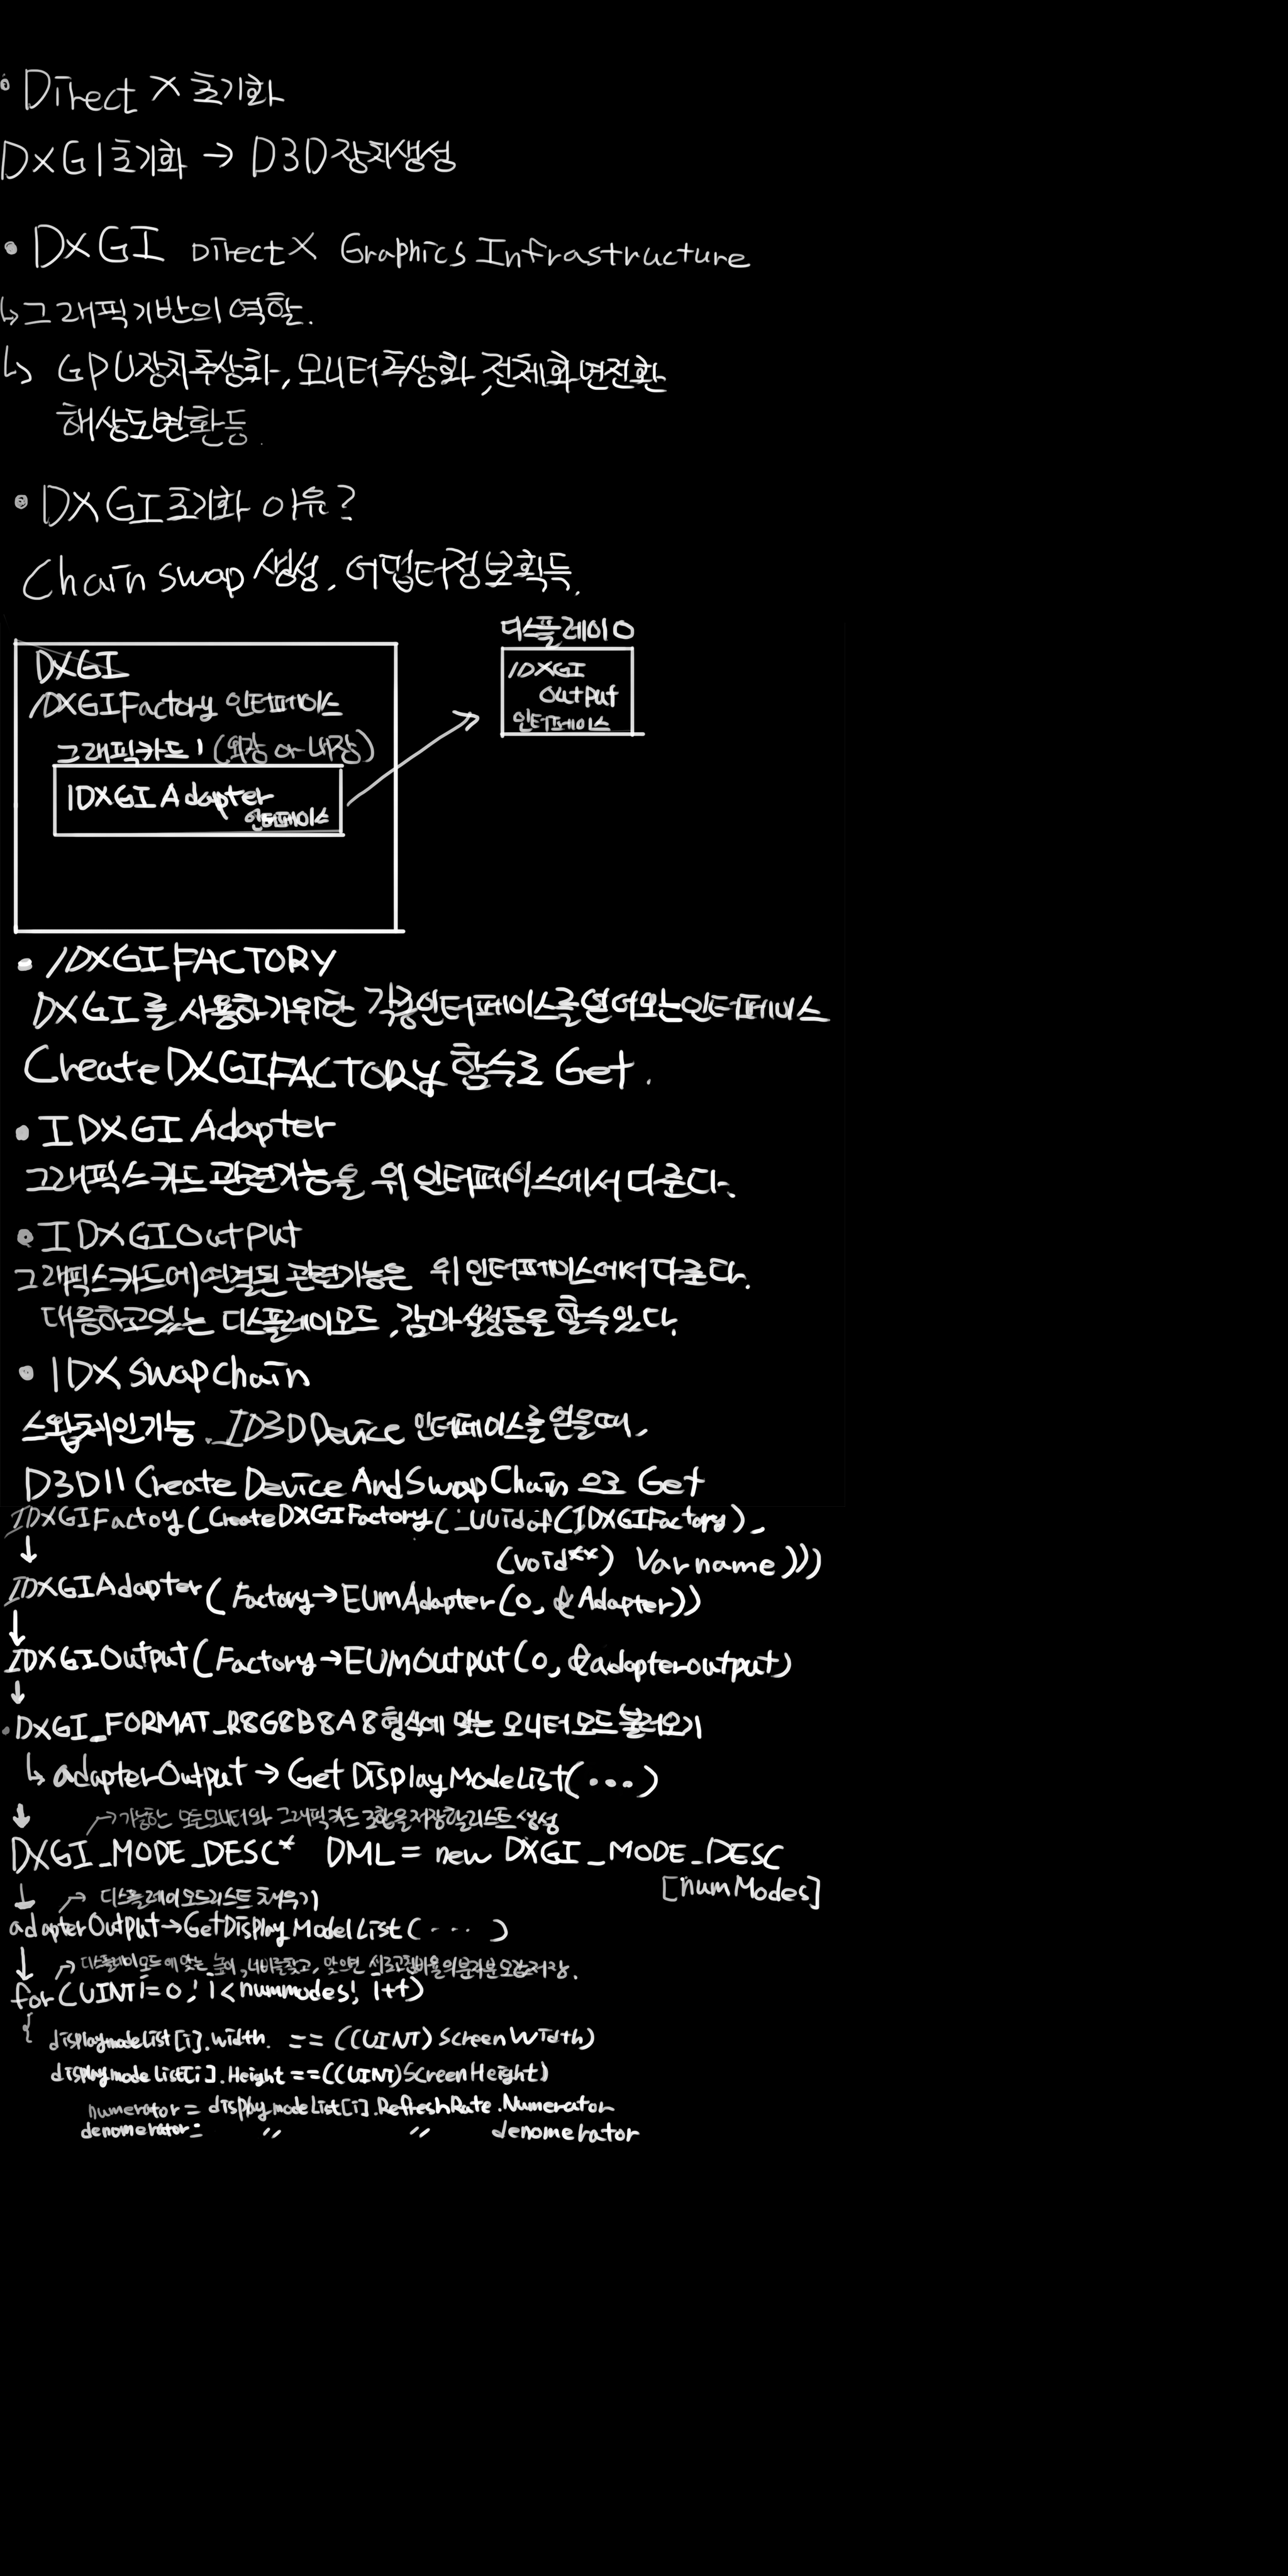 • DirectX 초기화
DXGI초기화 → D3D장치생성
• DXGI DirectX Graphics Infrastructure
↳그래픽기반의 역할.
↳ GPU장치추상화, 모니터추상화, 전체화면전환
해상도변환등.
• DXGI초기화 이유?
Chain swap 생성, 어댑터정보획득.
디스플레이 0
DXGI
IDXGI
output
인터페이스
IDXGIFactory 인터페이스
그래픽카드 1 (외장 or 내장)
IDXGI Adapter
인터페이스
• IDXGIFACTORY
DXGI를 사용하기위한 각종인터페이스를얻어오는인터페이스
CreateDXGIFACTORY 함수로 Get.
• IDXGI Adapter
그래픽스카드 관련기능을 위 인터페이스에서 다룬다.
• IDXGIOutput
그래픽스카드에연결된 관련기능은 위 인터페이스에서 다룬다.
대응하고있는 디스플레이모드, 감마설정등을 할수있다.
• IDXSwapChain
스왑체인기능. ID3DDevice 인터페이스를 얻을때,
D3D11 Create Device And Swap Chain 으로 Get
IDXGIFactoy (CreateDXGIFactory(_uuidof(IDXGIFactory),
(void**) Varname)))
↓
IDXGIAdapter( Factory→EUMAdapter(0, &Adapter))
↓
IDXGIOutput(Factory→EUMOutput(0, &adapteroutput)
↓
• DXGI_FORMAT_R8G8B8A8형식에 맞는 모니터모드불러오기
↳ adapterOutput → GetDisplayModeList(...)
↓ → 가능한 모든모니터와 그래픽카드 조합을저장할리스트 생성
DXGI_MODE_DESC* DML = new DXGI_MODE_DESC
[numModes]
↓ → 디스플레이모드리스트 채우기
adapterOutput→GetDisplayModelList(...)
↓ → 디스플레이모드에맞는 높이,너비를찾고, 맞으면 새로고침비율의분자분모값저장.
for(UINTi=0; i<nummodes; i++)
{ displaymodelist[i].width. == ((UINT) ScreenWidth)
displaymodelist[i].Height==((UINT)ScreenHeight)
numerator = displaymodelist[i].RefreshRate.Numerator
denomerator= 〃 〃 denomerator